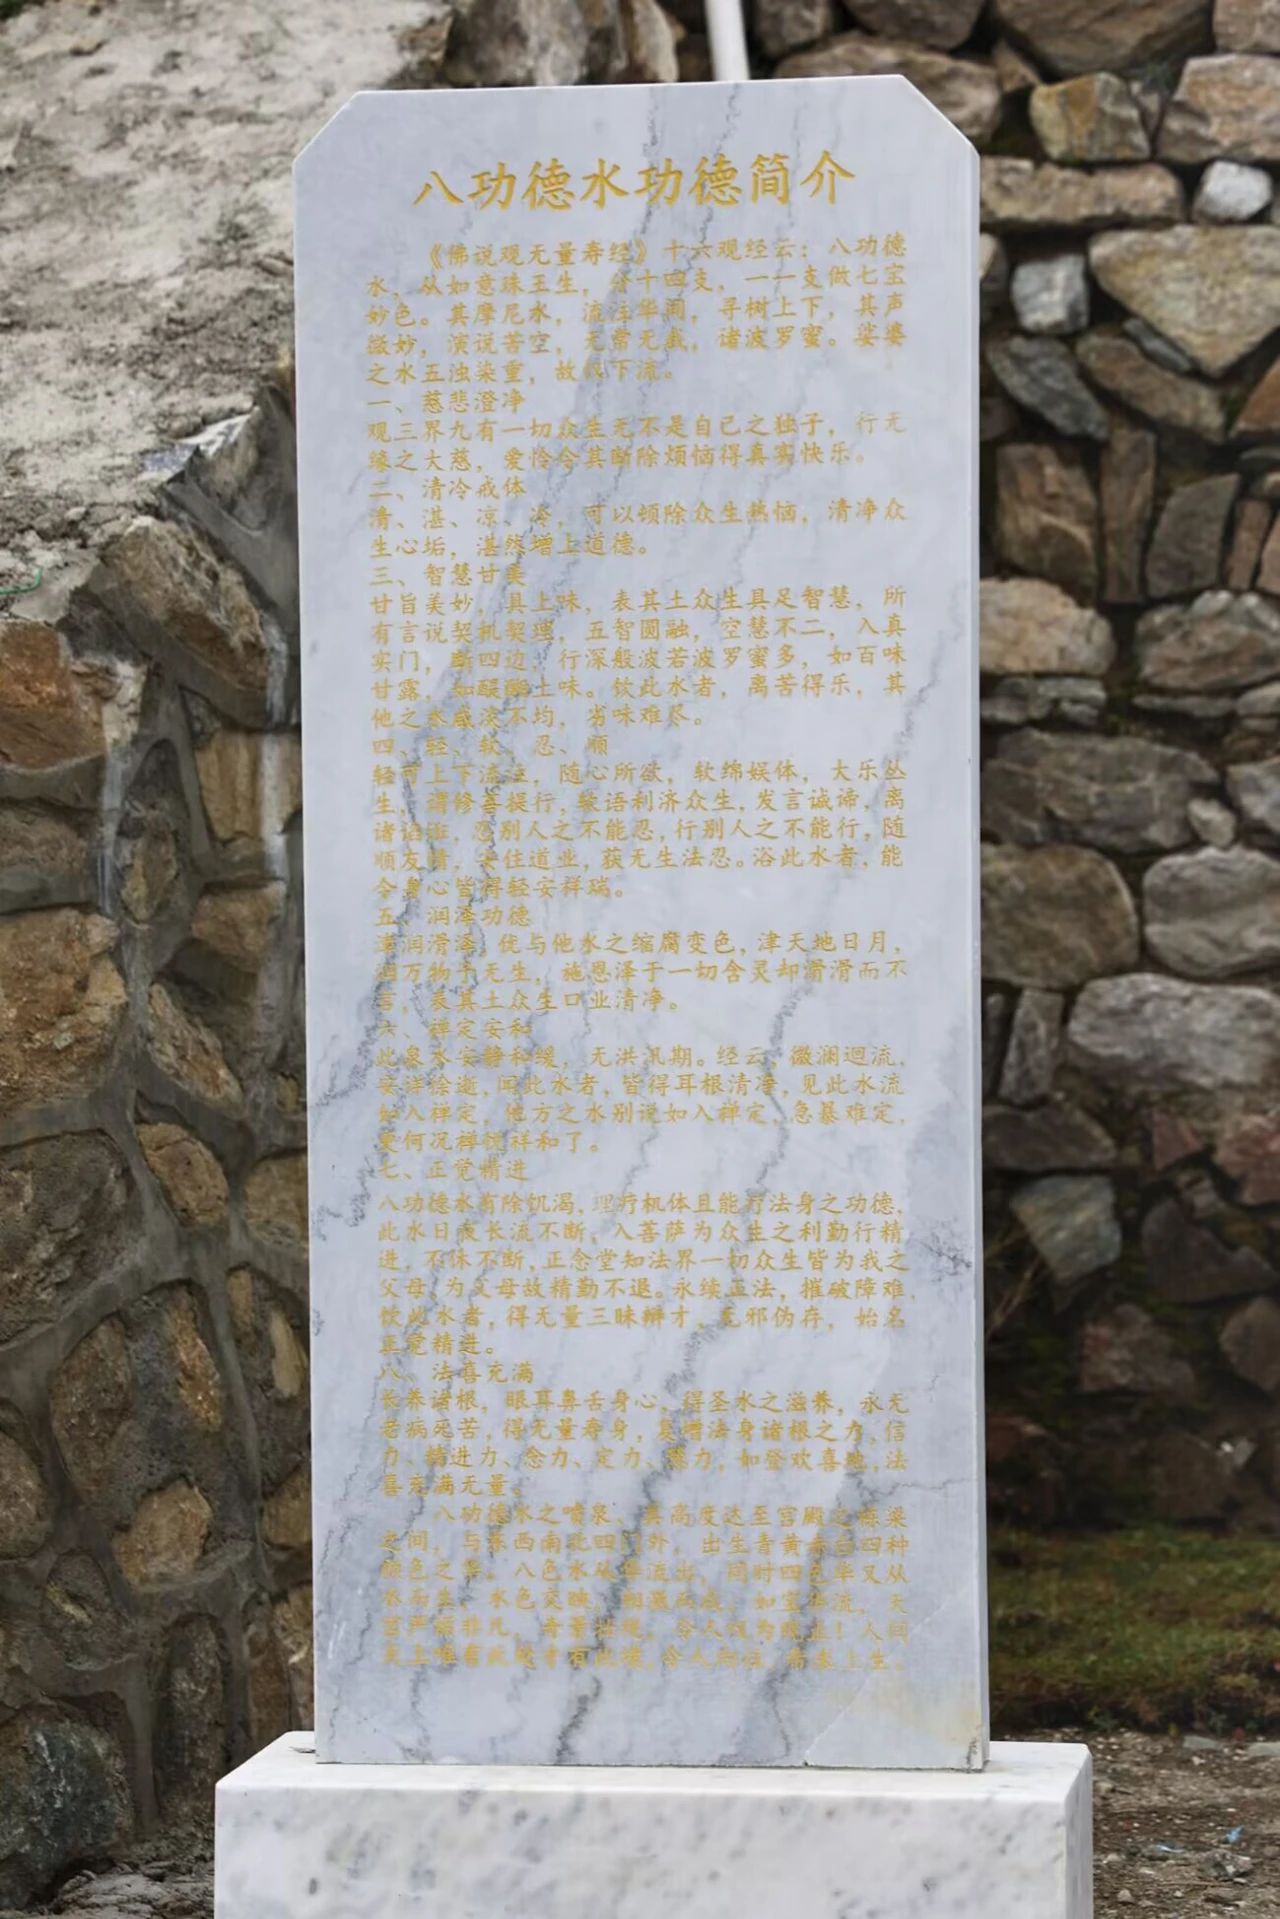 八功德水功德简介
《佛说观无量寿经》十六观经云：八功德
水，从如意珠王生，分十四支，一一支做七宝
妙色。其摩尼水，流注华间，寻树上下，其声
微妙，演说苦空，无常无我，诸波罗蜜。娑婆
之水五浊染重，故仅下流。
一、慈悲澄净
观三界九有一切众生无不是自己之独子，行无
缘之大慈，爱怜令其断除烦恼得真实快乐。
二、清冷戒体
清、湛、凉、冷，可以顿除众生热恼，清净众
生心垢，湛然增上道德。
三、智慧甘美
甘旨美妙，具上味，表其土众生具足智慧，所
有言说契机契理，五智圆融，空慧不二，入真
实门，断四边，行深般波若波罗蜜多，如百味
甘露，如醍醐上味。饮此水者，离苦得乐，其
他之水咸淡不均，劣味难尽。
四、轻、软、忍、顺
轻可上下流注，随心所欲，软绵娱体，大乐丛
生，谓修菩提行，柔语利济众生，发言诚谛，离
诸谄诳，忍别人之不能忍，行别人之不能行，随
顺友情，安住道业，获无生法忍。浴此水者，能
令身心皆得轻安祥瑞。
五、润泽功德
润滑泽，优与他水之缩腐变色，津天地日月，
万物于无生，施恩泽于一切含灵却滑滑而不
言，表其土众生口业清净。
六、禅定安和
此泉水安静和缓，无洪汛期。经云，微澜迴流，
安详徐逝，闻此水者，皆得耳根清净，见此水流
如入禅定，他方之水别说如入禅定，急暴难定，
更何况禅悦祥和了。
七、正觉精进
八功德水有除饥渴，理疗机体且能疗法身之功德，
此水日夜长流不断，入菩萨为众生之利勤行精
进，不休不断，正念堂知法界一切众生皆为我之
父母，为父母故精勤不退。永续正法，摧破障难，
饮此水者，得无量三昧辩才，无邪伪存，始名
正觉精进。
八、法喜充满
长养诸根，眼耳鼻舌身心，得圣水之滋养，永无
老病死苦，得无量寿身，复增法身诸根之力，信
力、精进力、念力、定力、慧力，如登欢喜地，法
喜充满无量。
八功德水之喷泉、其高度达至宫殿之梁
之间，与东西南北四门外，出生青黄赤白四种
颜色之华。八色水从华流出，同时四色华又从
水而生，水色交映，如宝华流，天
宫严丽非凡，令人叹为观止！人间
天上唯有此处才有此境，令人向往，